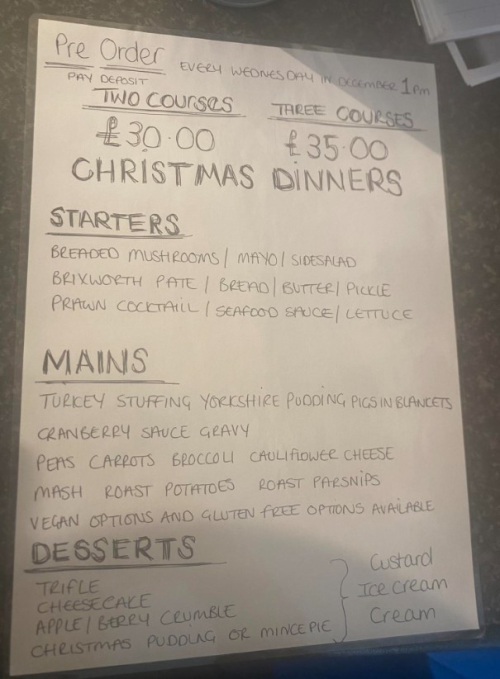 Pre Order EVERY WEDNESDAY IN DECEMBER 1pm
PAY DEPOSIT
TWO COURSES THREE COURSES
£30.00 £35.00
CHRISTMAS DINNERS
STARTERS
BREADED MUSHROOMS / MAYO / SIDESALAD
BRIXWORTH PATE / BREAD / BUTTER / PICKLE
PRAWN COCKTAIL / SEAFOOD SAUCE / LETTUCE
MAINS
TURKEY STUFFING YORKSHIRE PUDDING PIGS IN BLANCETS
CRANBERRY SAUCE GRAVY
PEAS CARROTS BROCCOLI CAULIFLOWER CHEESE
MASH ROAST POTATOES ROAST PARSNIPS
VEGAN OPTIONS AND GLUTEN FREE OPTIONS AVAILABLE
DESSERTS
TRIFLE
CHEESECAKE
APPLE / BERRY CRUMBLE
CHRISTMAS PUDDING OR MINCE PIE
Custard
Ice cream
Cream